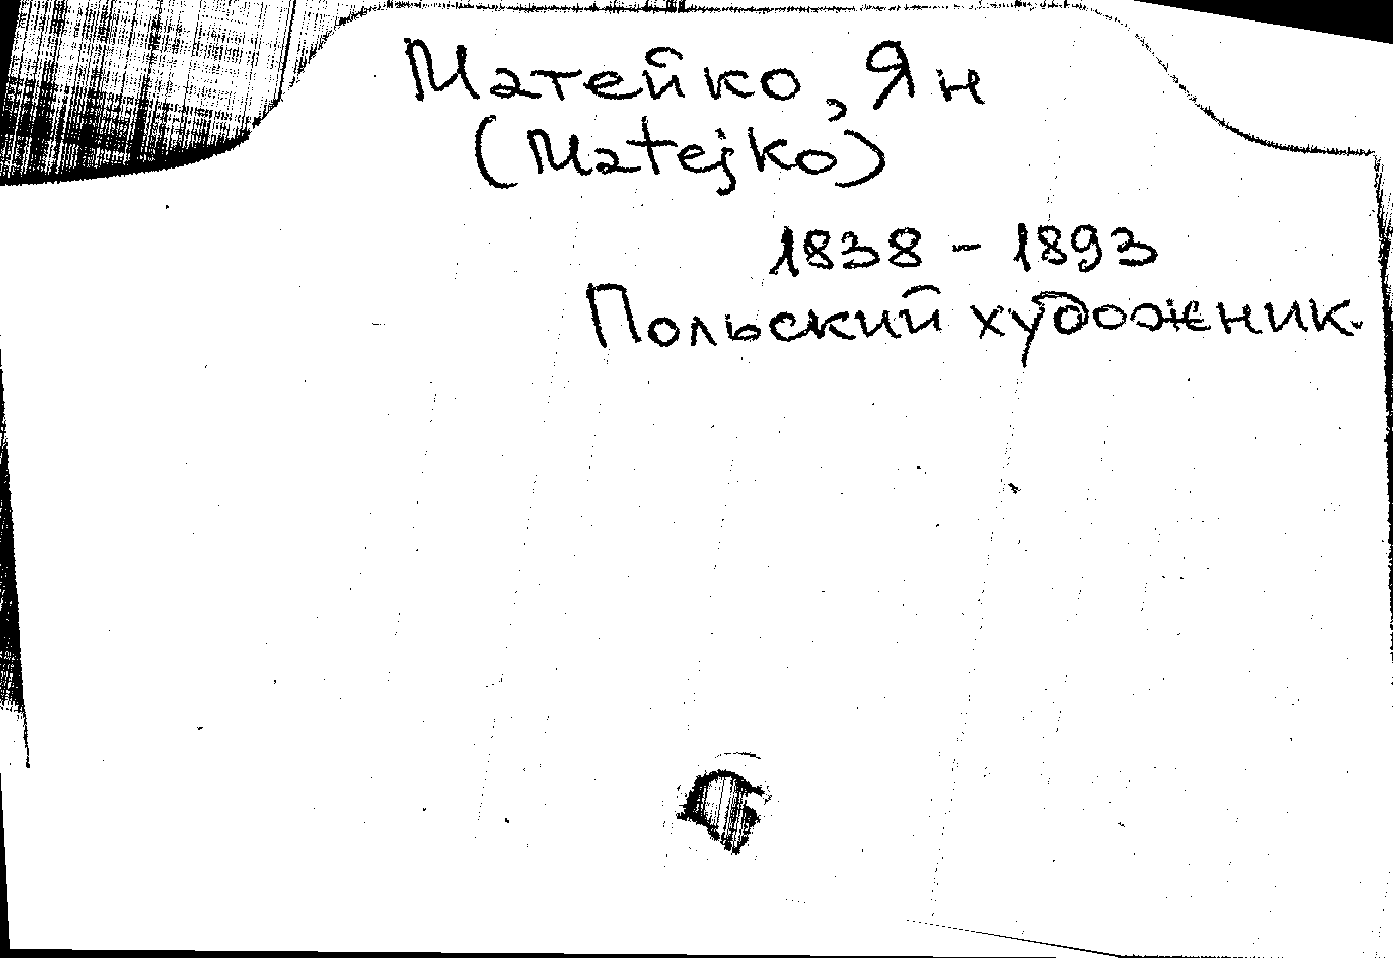 Матейко, Ян
(Matejko)
1838 - 1893
Польский художник.